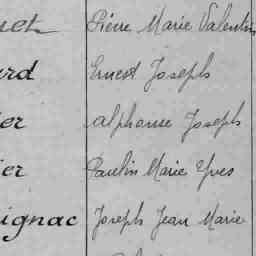 Pierre Marie Valentin
ard Ernest Joseph
er Alphonse Joseph
ier Paulin Marie Yves
ignac Joseph Jean Marie